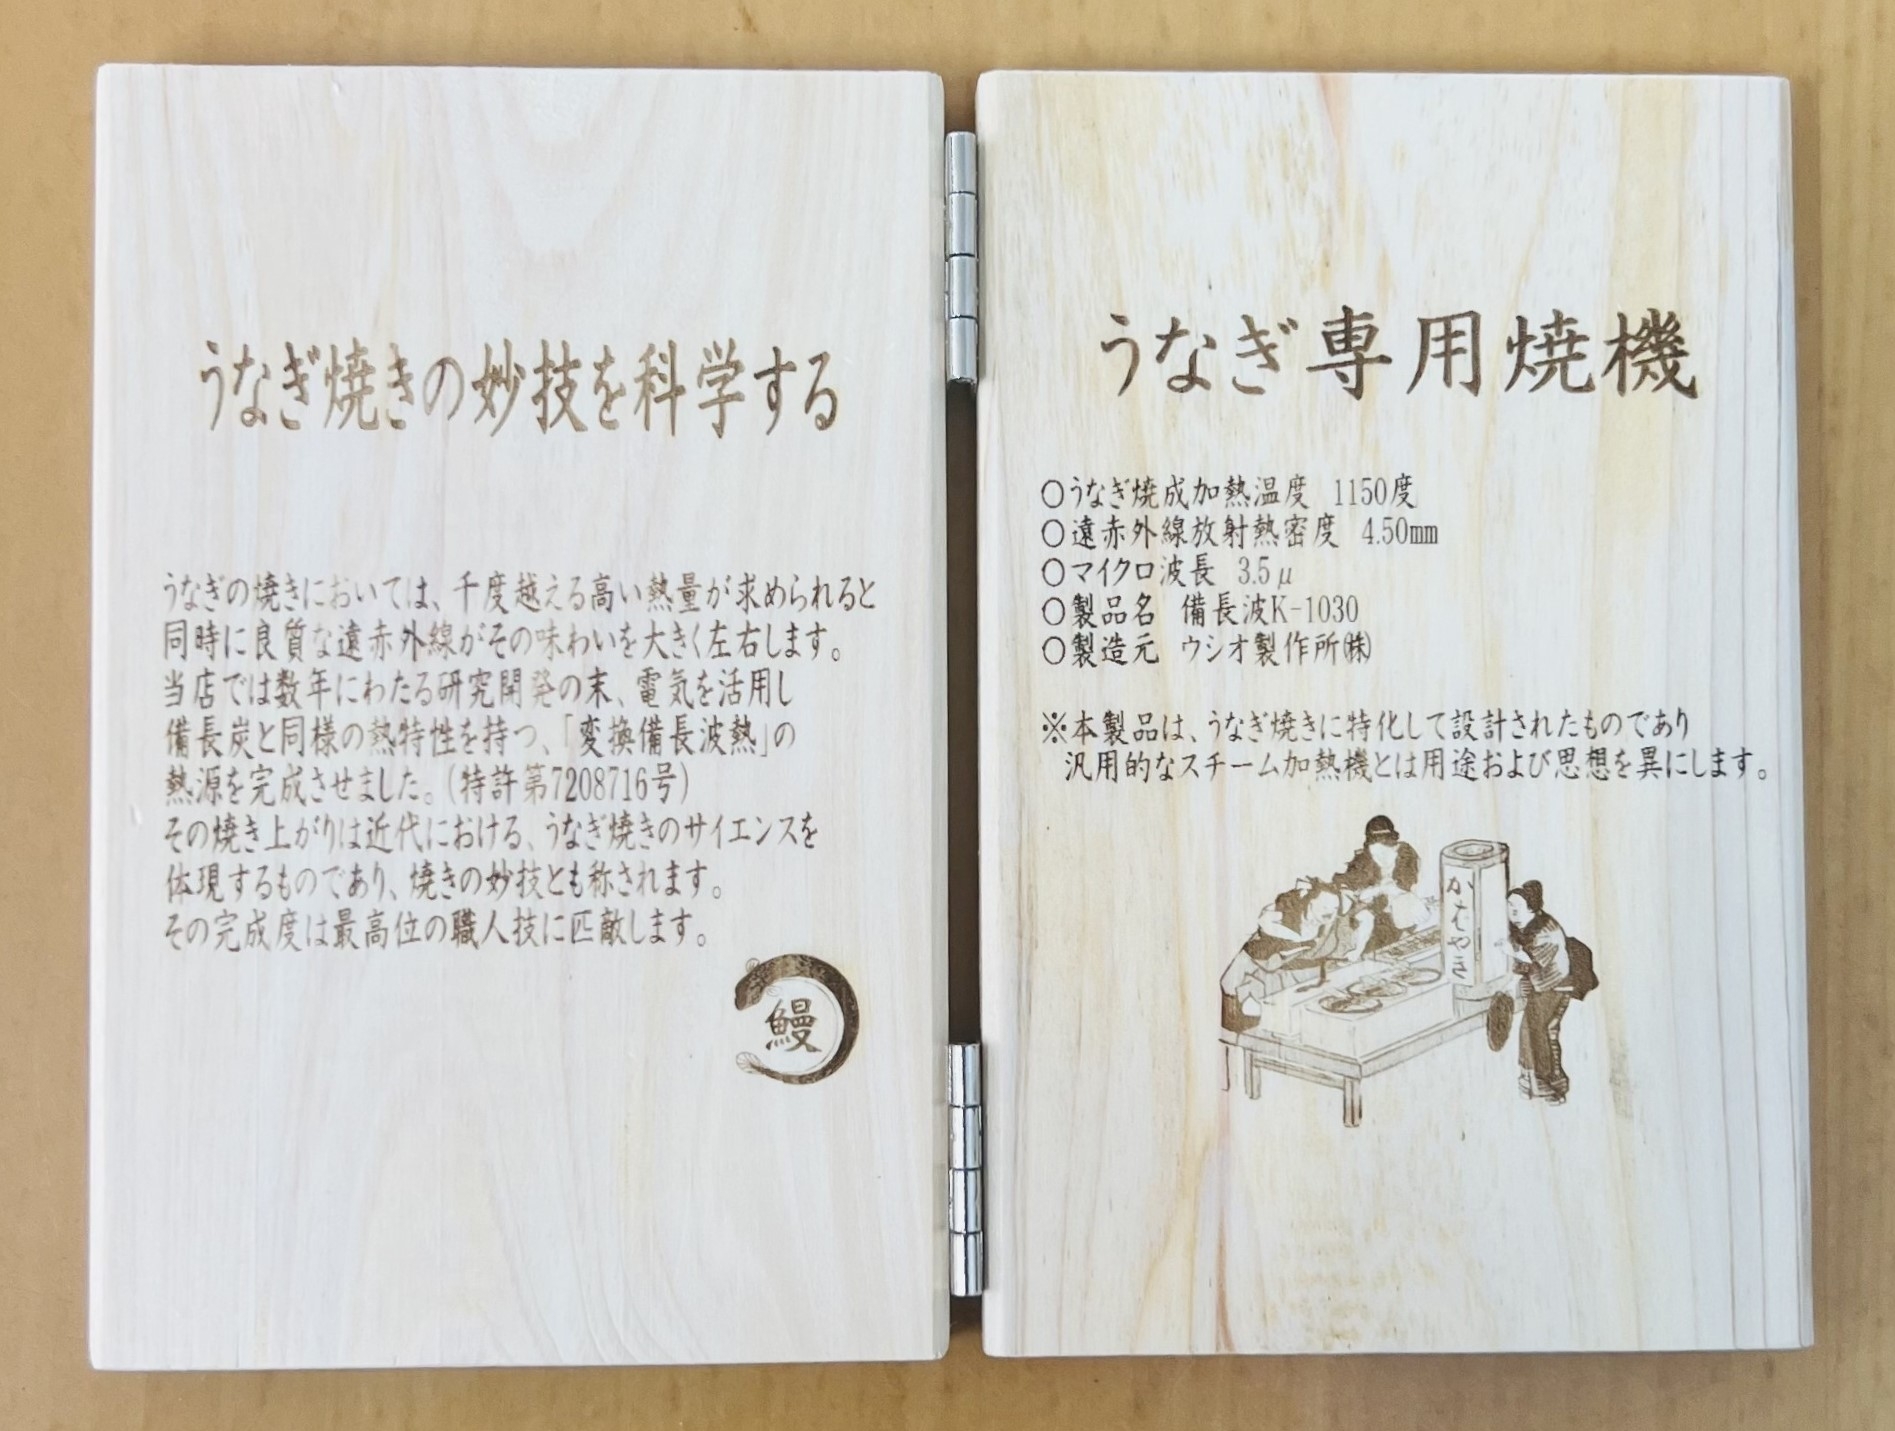 うなぎ焼きの妙技を科学する
うなぎの焼きにおいては、千度越える高い熱量が求められると
同時に良質な遠赤外線がその味わいを大きく左右します。
当店では数年にわたる研究開発の末、電気を活用し
備長炭と同様の熱特性を持つ、「変換備長波熱」の
熱源を完成させました。(特許第7208716号)
その焼き上がりは近代における、うなぎ焼きのサイエンスを
体現するものであり、焼きの妙技とも称されます。
その完成度は最高位の職人技に匹敵します。
鰻
うなぎ専用焼機
○うなぎ焼成加熱温度 1150度
○遠赤外線放射熱密度 4.50mm
○マイクロ波長 3.5μ
○製品名 備長波K-1030
○製造元 ウシオ製作所㈱
※本製品は、うなぎ焼きに特化して設計されたものであり
汎用的なスチーム加熱機とは用途および思想を異にします。
かばやき